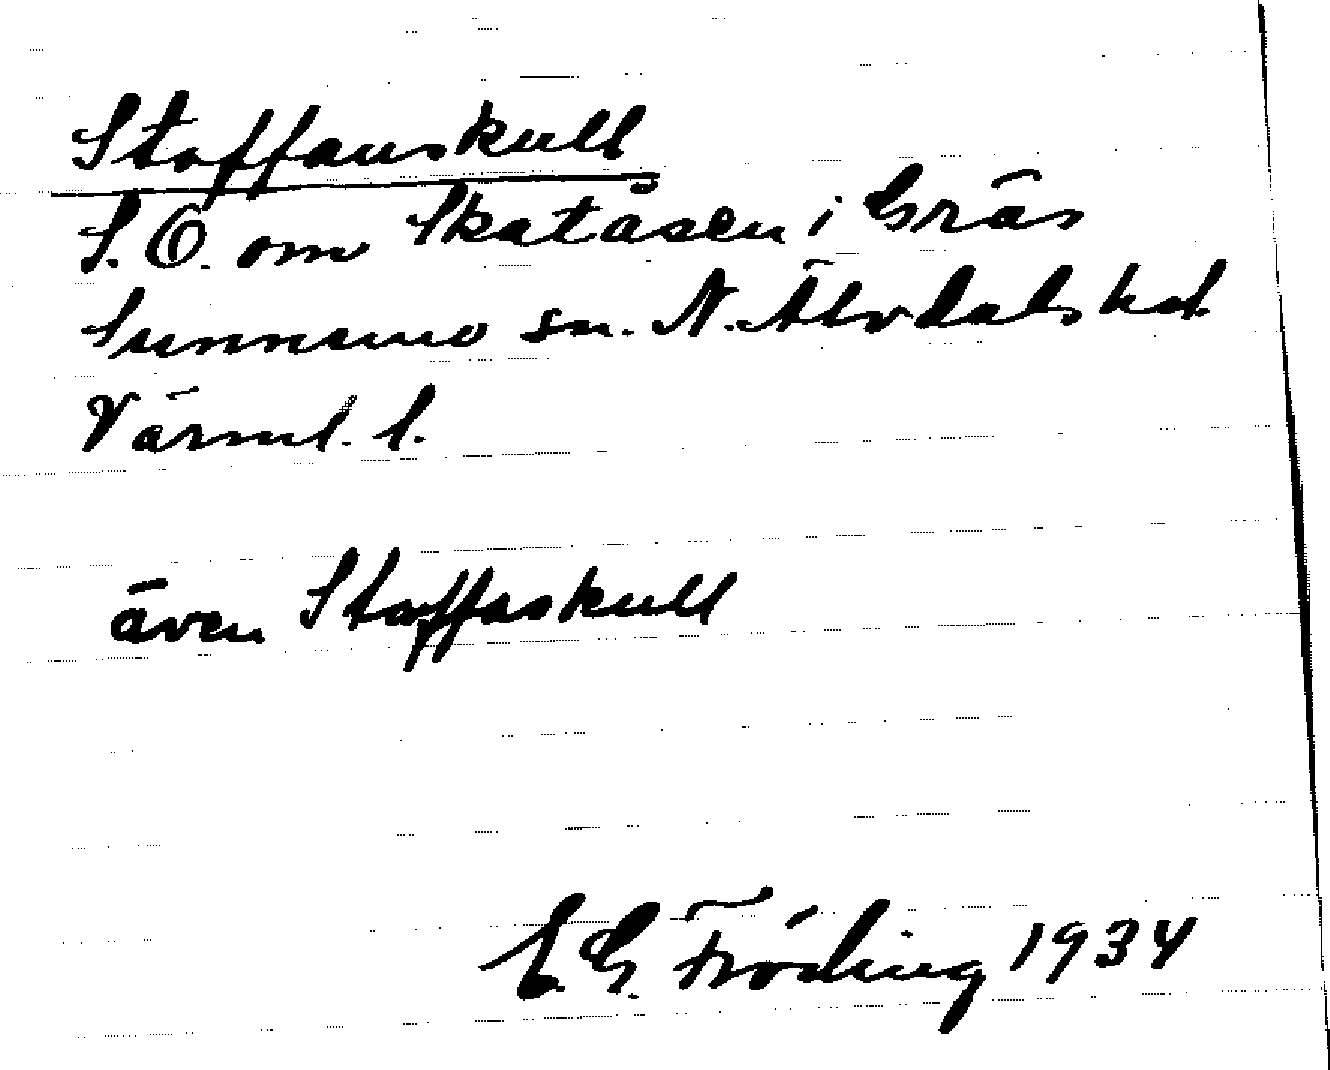 Staffanskull
S.Ö. om Skatåsen i Gräs
Sunnemo sn. N. Älvdals hd.
Värml. l.
även Staffaskull
E. G. Fröding 1934